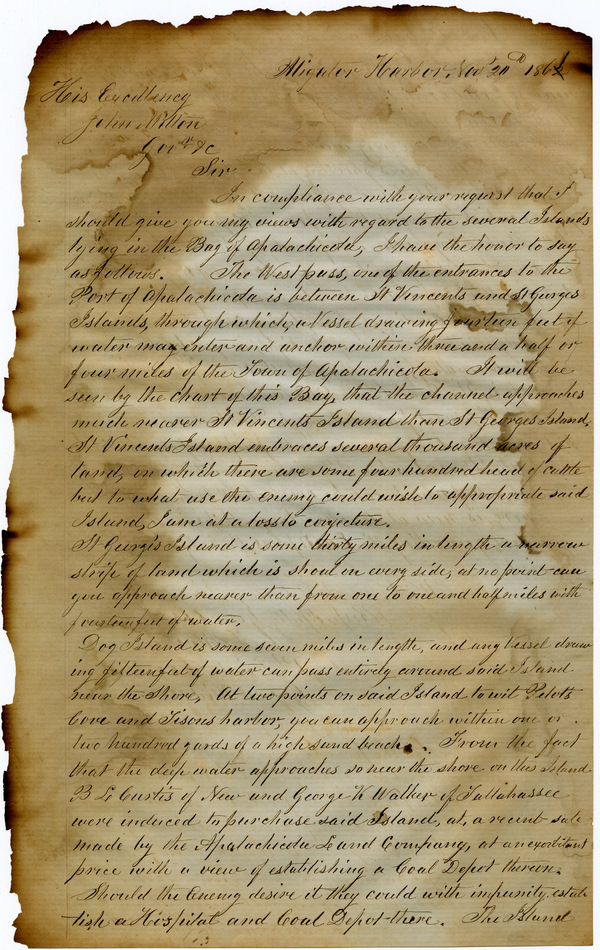 Aligator Harbor, Nov 20th 186
His Excellency
John Milton
Govr &c
Sir
In compliance with your request that I
should give you my views with regard to the several Islands
lying in the Bay of Apalachicola, I have the honor to say
as follows. The West pass, one of the entrances to the
Port of Apalachicola is between St Vincents and St Gorges
Islands, through which, a Vessel drawing fourteen feet of
water may enter and anchor within three and a half or
four miles of the Town of Apalachicola. It will be
seen by the chart of this Bay, that the channel approaches
much nearer St Vincents Island than St Georges Island,
St Vincents Island embraces several thousand acres of
land, on which there are some four hundred head of cattle
but to what use the enemy could wish to appropriate said
Island, I am at a loss to conjecture.
St Georges Island is some thirty miles in length a narrow
stripe of land which is shoal on every side, at no point can
you approach nearer than from one to one and half miles with
fourteen feet of water.
Dog Island is some seven miles in length, and any Vessel draw
ing fifteen feet of water can pass entirely around said Island
near the Shore, At two points on said Island to wit Pelots
Cove and Tisons harbor, you can approach within one or
two hundred yards of a high sand beach. From the fact
that the deep water approaches so near the shore on this Island
B L Curtis of New and George K Walker of Tallahassee
were induced to purchase said Island, at, a recent sale
made by the Apalachicola Land Company, at an exorbitant
price with a view of establishing a Coal Depot thereon.
Should the Enemy desire it they could with impunity estab
lish a Hospital and Coal Depot there. The Island